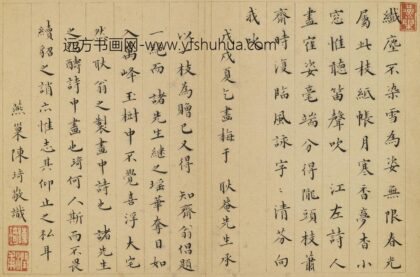 纖塵不染雪為姿無限春光
屬此枝紙帳月寒香夢杳小
窓惟聽笛聲吹 江左詩人
畫寉姿毫端分得隴頭枝蕭
齋時復臨風詠字〻清芬向
我吹
戊戌夏乞畫梅于 耿菴先生承
以一枝為贈已又得 知齋翁倡題
一絶而 諸先生継之瑶華奪目如
入萬峰玉樹中不覺喜浮大宅
然耿翁之製畫中詩也 諸先生
之酧詩中畫也 琦何人斯而不畏
續貂之誚亦惟志其仰止之私耳
燕巢陳琦敬識
远方书画网-www.yfshuhua.com